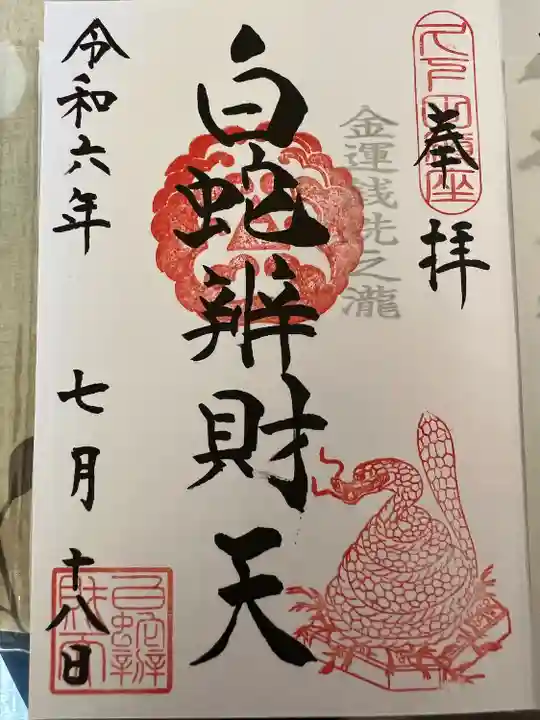 奉拝
金運銭洗之瀧
白蛇辨財天
令和六年 七月 十八日
白蛇辨
財天